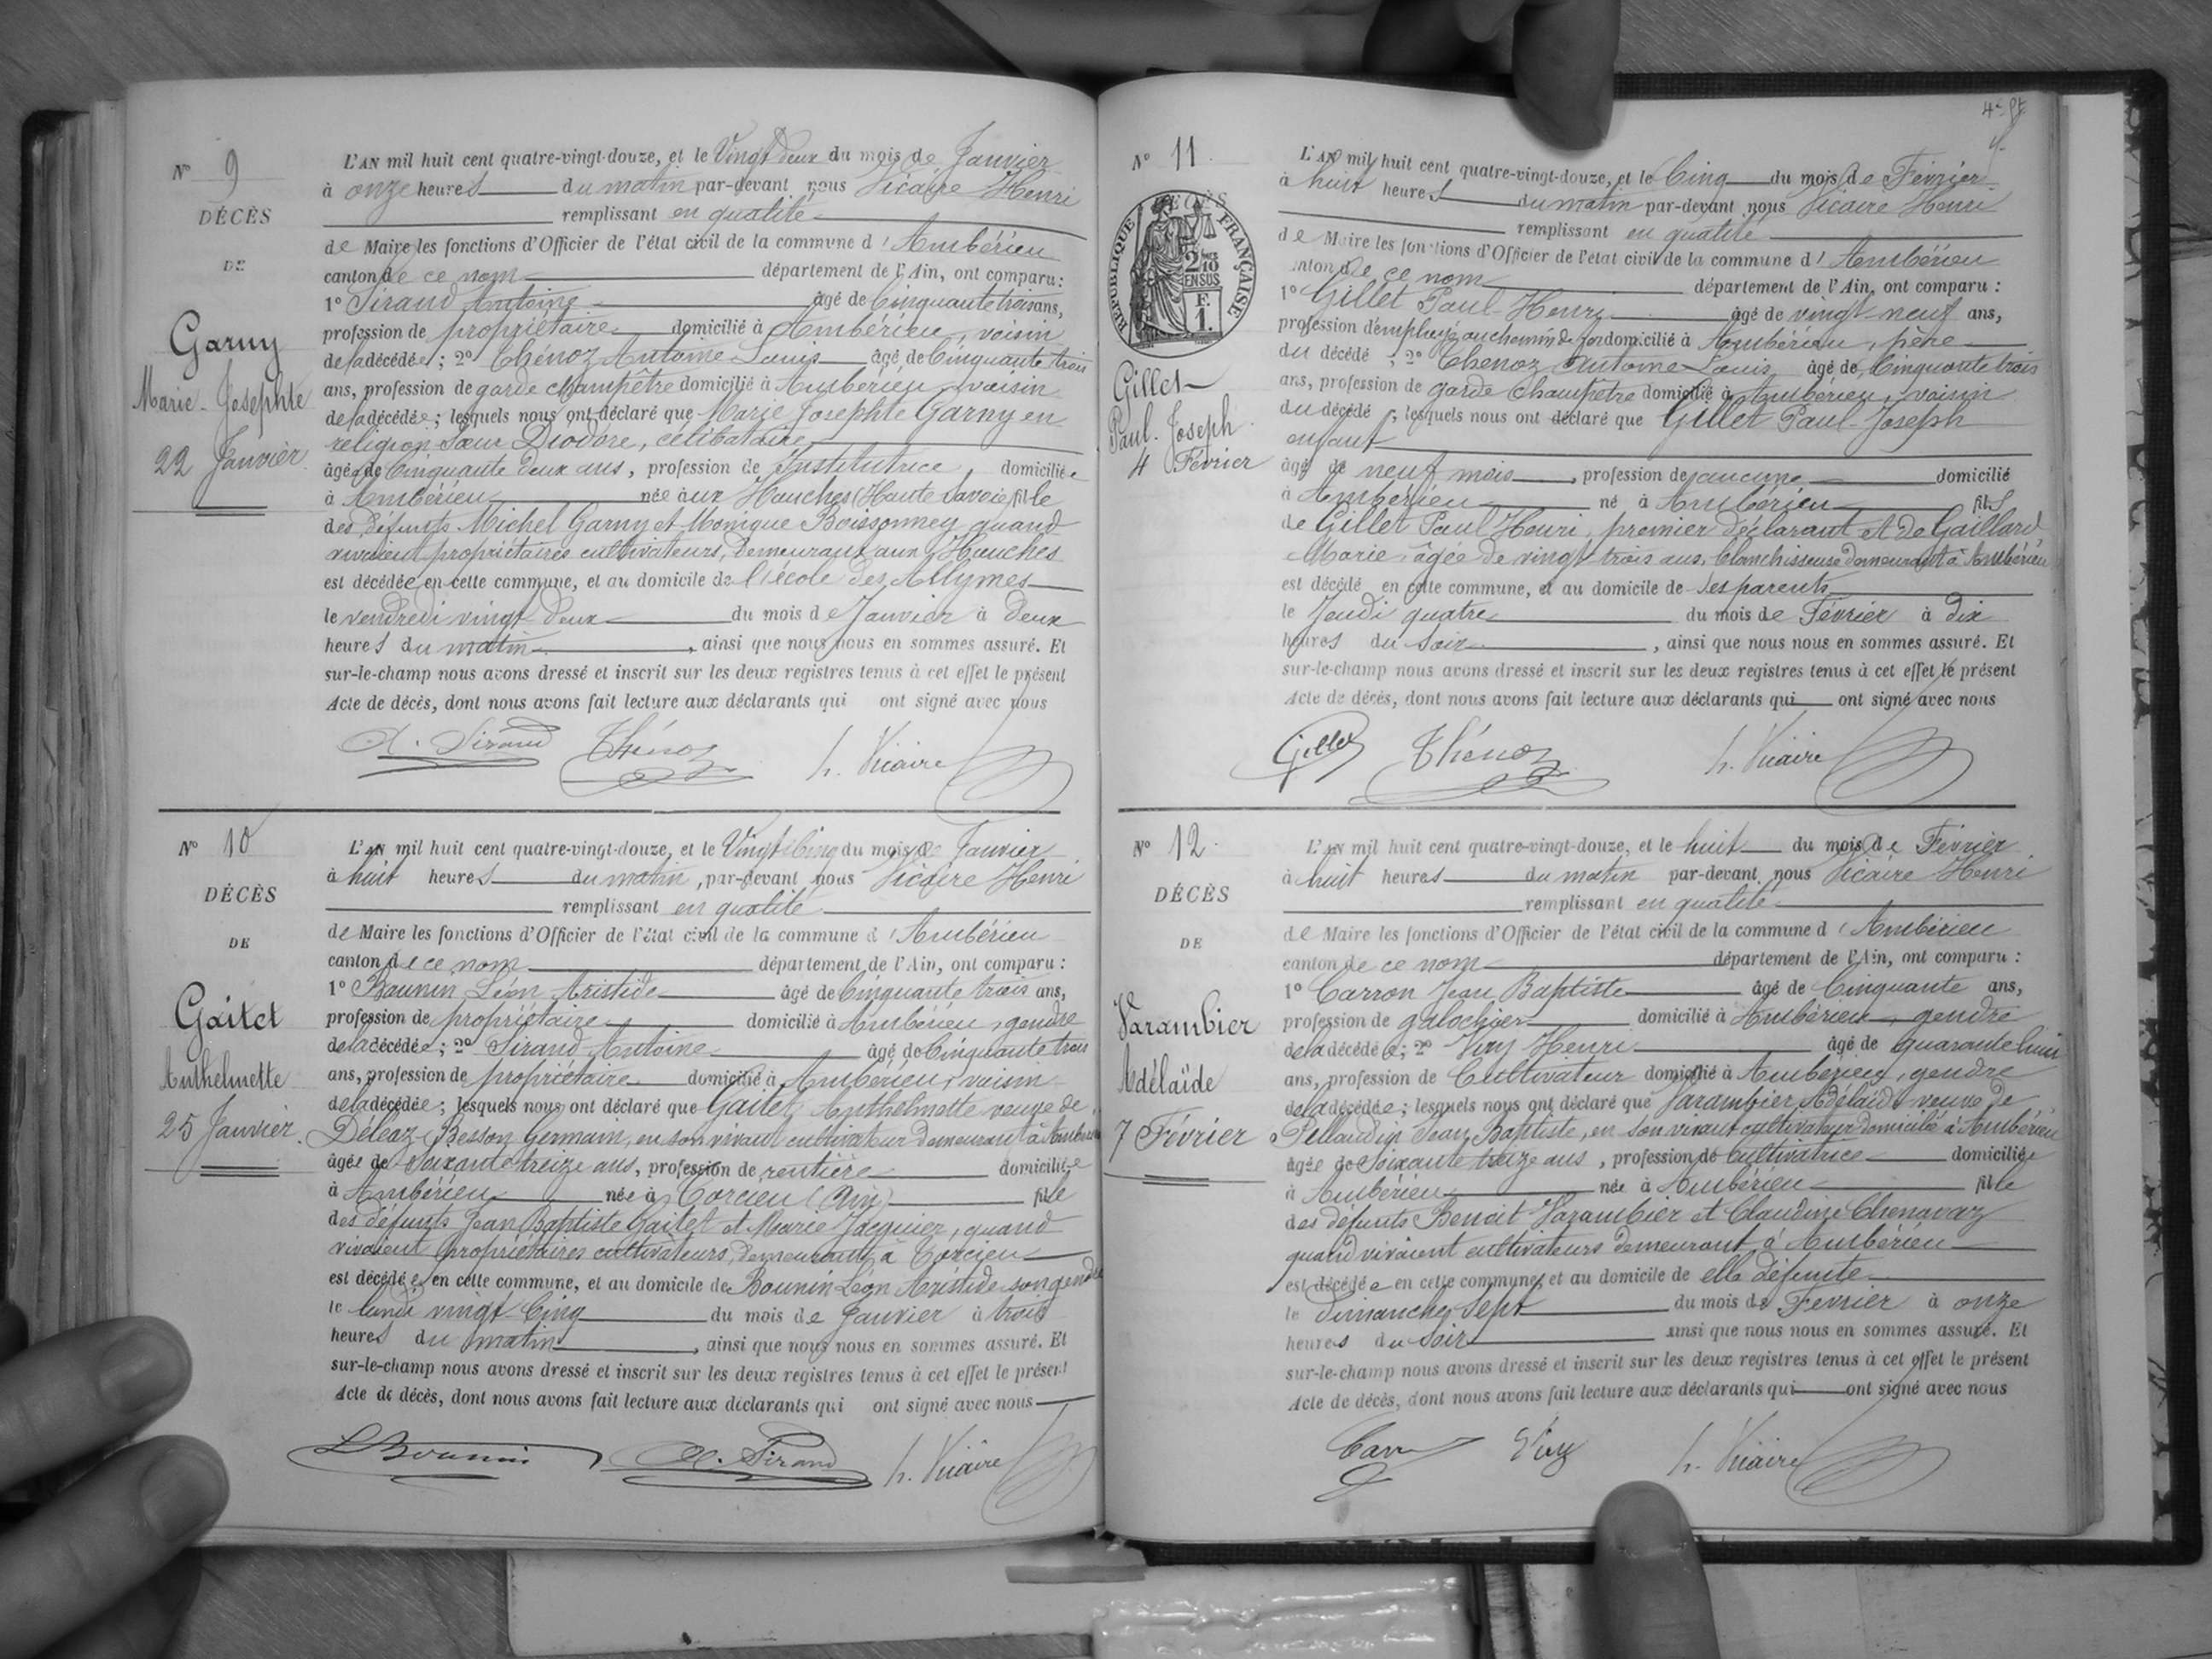 N° 9
DÉCÈS
DE
Garny
Marie-Josephte
22 Janvier
L'AN mil huit cent quatre-vingt-douze, et le Vingt deux du mois de Janvier
à onze heures du matin par-devant nous Vicaire Henri
remplissant en qualité
de Maire les fonctions d'Officier de l'état civil de la commune d'Ambérieu
canton de ce nom département de l'Ain, ont comparu :
1° Sirand Antoine âgé de Cinquante trois ans,
profession de propriétaire domicilié à Ambérieu, voisin
de la décédée ; 2° Chénoz Antoine Louis âgé de Cinquante trois
ans, profession de garde champêtre domicilié à Ambérieu voisin
de la décédée ; lesquels nous ont déclaré que Marie Josephte Garny en
religion Sœur Diodore, célibataire
âgée de Cinquante deux ans, profession de Institutrice, domiciliée
à Ambérieu née aux Houches (Haute Savoie) fille
des défunts Michel Garny et Monique Boissonney quand
vivaient propriétaires cultivateurs, demeurant aux Houches
est décédée en cette commune, et au domicile de l'école des Allymes
le vendredi vingt deux du mois de Janvier à deux
heures du matin, ainsi que nous nous en sommes assuré. Et
sur-le-champ nous avons dressé et inscrit sur les deux registres tenus à cet effet le présent
Acte de décès, dont nous avons fait lecture aux déclarants qui ont signé avec nous
A. Sirand Chénoz h. Vicaire
N° 10
DÉCÈS
DE
Gaitet
Anthelmette
25 Janvier.
L'AN mil huit cent quatre-vingt-douze, et le Vingt Cinq du mois de Janvier
à huit heures du matin, par-devant nous Vicaire Henri
remplissant en qualité
de Maire les fonctions d'Officier de l'état civil de la commune d'Ambérieu
canton de ce nom département de l'Ain, ont comparu :
1° Bounin Léon Aristide âgé de Cinquante trois ans,
profession de propriétaire domicilié à Ambérieu, gendre
de la décédée ; 2° Sirand Antoine âgé de Cinquante trois
ans, profession de propriétaire domicilié à Ambérieu, voisin
de la décédée ; lesquels nous ont déclaré que Gaitet Anthelmette veuve de
Déléaz-Besson Germain, en son vivant cultivateur demeurant à Ambérieu
âgée de Soixante treize ans, profession de rentière domiciliée
à Ambérieu née à Torcieu (Ain) fille
des défunts Jean Baptiste Gaitet et Marie Jacquier, quand
vivaient propriétaires cultivateurs, demeurant à Torcieu
est décédée en cette commune, et au domicile de Bounin Léon Aristide son gendre
le lundi vingt-Cinq du mois de Janvier à trois
heures du matin, ainsi que nous nous en sommes assuré. Et
sur-le-champ nous avons dressé et inscrit sur les deux registres tenus à cet effet le présent
Acte de décès, dont nous avons fait lecture aux déclarants qui ont signé avec nous
L Bounin A. Sirand h. Vicaire
N° 11.
DÉCÈS
RÉPUBLIQUE FRANÇAISE
2/10 EN SUS
F. 1.
Gillet
Paul-Joseph
4 Février
L'AN mil huit cent quatre-vingt-douze, et le Cinq du mois de Février
à huit heures du matin par-devant nous Vicaire Henri
remplissant en qualité
de Maire les fonctions d'Officier de l'état civil de la commune d'Ambérieu
canton de ce nom département de l'Ain, ont comparu :
1° Gillet Paul-Henri âgé de vingt-neuf ans,
profession d'employé au chemin de fer domicilié à Ambérieu, père
du décédé ; 2° Chenoz Antoine Louis âgé de Cinquante trois
ans, profession de garde Champêtre domicilié à Ambérieu, voisin
du décédé ; lesquels nous ont déclaré que Gillet Paul-Joseph
enfant
âgé de neuf mois, profession de aucune domicilié
à Ambérieu né à Ambérieu fils
de Gillet Paul Henri, premier déclarant et de Gaillard
Marie, âgée de vingt-trois ans, blanchisseuse demeurant à Ambérieu
est décédé en cette commune, et au domicile de ses parents
le Jeudi quatre du mois de Février à dix
heures du soir, ainsi que nous nous en sommes assuré. Et
sur-le-champ nous avons dressé et inscrit sur les deux registres tenus à cet effet le présent
Acte de décès, dont nous avons fait lecture aux déclarants qui ont signé avec nous
Gillet Chénoz h. Vicaire
N° 12.
DÉCÈS
DE
Varambier
Adélaïde
7 Février
L'AN mil huit cent quatre-vingt-douze, et le huit du mois de Février
à huit heures du matin par-devant nous Vicaire Henri
remplissant en qualité
de Maire les fonctions d'Officier de l'état civil de la commune d'Ambérieu
canton de ce nom département de l'Ain, ont comparu :
1° Carron Jean Baptiste âgé de Cinquante ans,
profession de galochier domicilié à Ambérieu, gendre
de la décédée ; 2° Viry Henri âgé de quarante huit
ans, profession de Cultivateur domicilié à Ambérieu, gendre
de la décédée ; lesquels nous ont déclaré que Varambier Adélaïde veuve de
Pellaudin Jean Baptiste, en son vivant cultivateur domicilié à Ambérieu
âgée de Soixante treize ans, profession de Cultivatrice domiciliée
à Ambérieu née à Ambérieu fille
des défunts Benoit Varambier et Claudine Chenavaz
quand vivaient cultivateurs demeurant à Ambérieu
est décédée en cette commune, et au domicile de elle défunte
le Dimanche, Sept du mois de Février à onze
heures du soir ainsi que nous nous en sommes assuré. Et
sur-le-champ nous avons dressé et inscrit sur les deux registres tenus à cet effet le présent
Acte de décès, dont nous avons fait lecture aux déclarants qui ont signé avec nous
h. Vicaire